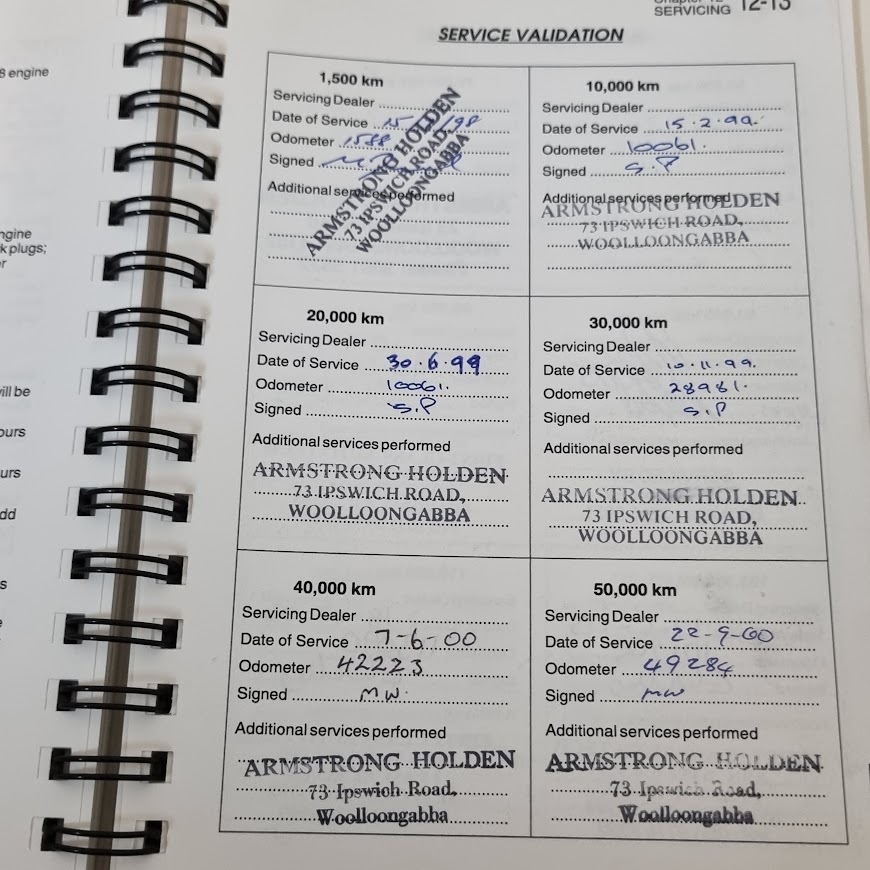 SERVICING 12-13
SERVICE VALIDATION
8 engine
ngine
k plugs;
r
ill be
ours
urs
dd
s
e
1,500 km
Servicing Dealer
Date of Service 15 98
Odometer 1588
Signed
Additional services performed
ARMSTRONG HOLDEN
73 IPSWICH ROAD,
WOOLLOONGABBA
10,000 km
Servicing Dealer
Date of Service 15.2.99.
Odometer 10061.
Signed S.P
Additional services performed
ARMSTRONG HOLDEN
73 IPSWICH ROAD,
WOOLLOONGABBA
20,000 km
Servicing Dealer
Date of Service 30.6.99
Odometer 10061.
Signed S.P
Additional services performed
ARMSTRONG HOLDEN
73 IPSWICH ROAD,
WOOLLOONGABBA
30,000 km
Servicing Dealer
Date of Service 10.11.99.
Odometer 28981.
Signed S.P
Additional services performed
ARMSTRONG HOLDEN
73 IPSWICH ROAD,
WOOLLOONGABBA
40,000 km
Servicing Dealer
Date of Service 7-6-00
Odometer 42223
Signed MW.
Additional services performed
ARMSTRONG HOLDEN
73 Ipswich Road,
Woolloongabba
50,000 km
Servicing Dealer
Date of Service 22-9-00
Odometer 49284
Signed MW
Additional services performed
ARMSTRONG HOLDEN
73 Ipswich Road,
Woolloongabba